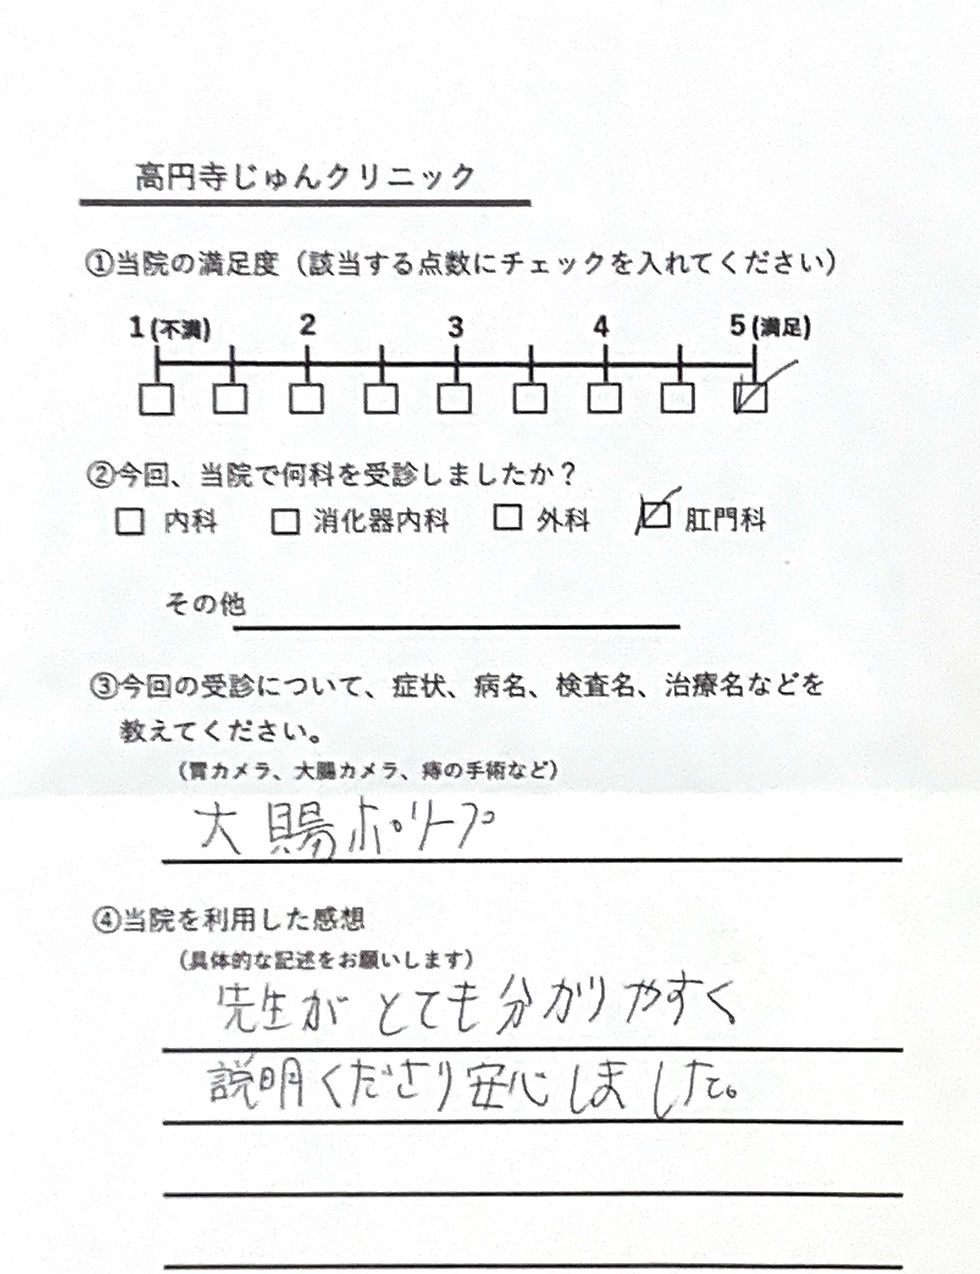 高円寺じゅんクリニック
①当院の満足度（該当する点数にチェックを入れてください）
1 (不満) 2 3 4 5 (満足)
②今回、当院で何科を受診しましたか？
内科 消化器内科 外科 肛門科
その他
③今回の受診について、症状、病名、検査名、治療名などを
教えてください。
（胃カメラ、大腸カメラ、痔の手術など）
大賜ポリープ
④当院を利用した感想
（具体的な記述をお願いします）
先生がとても分かりやすく
説明くださり安心しました。